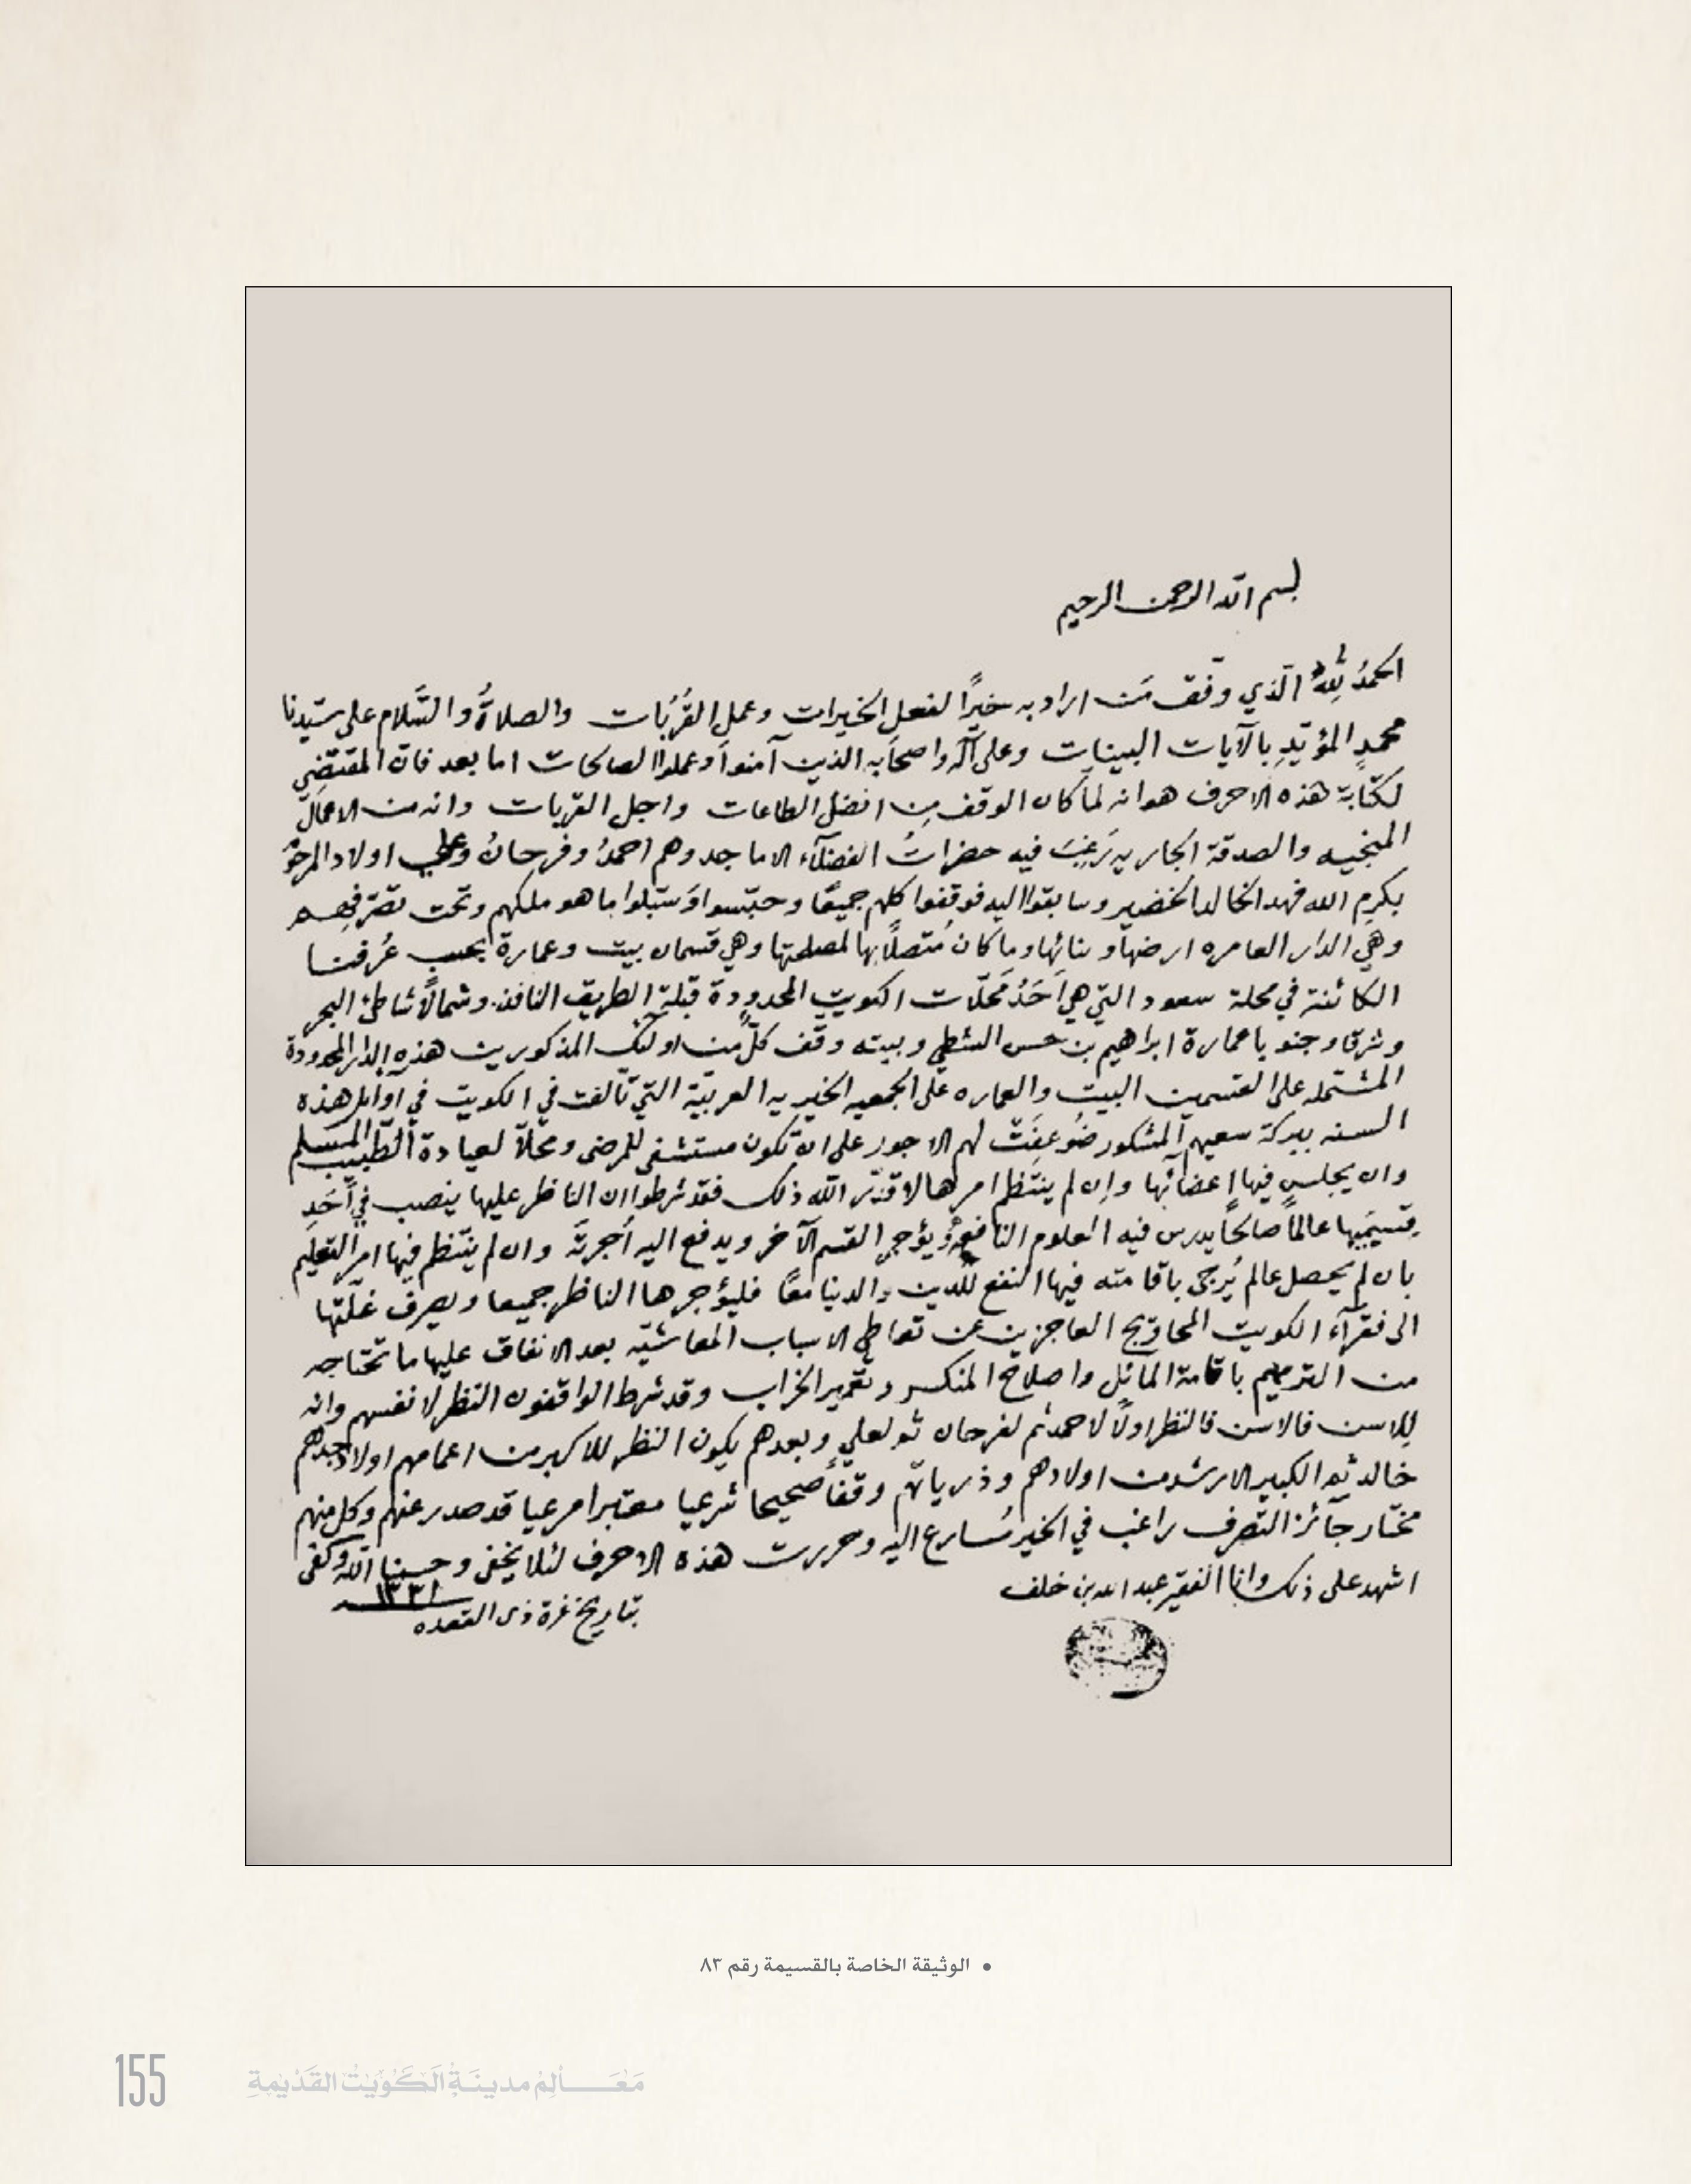 بسم الله الرحمن الرحيم
الحمدُ لِلّهِ الّذي وفّق مَن اراد به خيرًا لفعل الخيرات وعمل القُرُبات والصلاةُ والسَّلام على سيّدنا
محمدٍ المؤيّدِ بالآيات البينات وعلى آله واصحابه الذين آمنوا وعملوا الصالحات اما بعد فانّ المقتضِي
لكتابة هذه الاحرف هو انه لمّا كان الوقف مِن افضل الطاعات واجل القربات وانه من الاعمال
المنجيه والصدقة الجاريه رَغِبَ فيه حضراتُ الفضلآء الاماجد وهم احمدُ وفرحانُ وعلي اولاد المرحوم
بكرم الله فهد الخالد الخضير وسابقوا اليه فوقفوا كلهم جميعًا وحبّسوا وَسَبّلوا ما هو ملكهم وتحت تصرّفهم
وهي الدار العامره ارضها وبنائها وما كان مُتصلًا بها لمصلحتها وهي قسمان بيت وعمارة بحسب عُرفنا
الكائنة في محلة سعود التي هي اَحَدُ مَحَلّات الكويت المحدودة قبلةً الطريق النافذ وشمالًا شاطئ البحر
وشرقا وجنوبا عمارة ابراهيم بن حسن الشطي وبيته وقف كلٌّ من اولئك المذكورين هذه الدار المحدودة
المشتمله على القسمين البيت والعماره على الجمعيه الخيريه العربيّة التي تألفت في الكويت في اوايل هذه
السنه ببركة سعيهم المشكور ضُوعِفَتْ لهم الاجور على انْ تكون مستشفى للمرضى ومحلّاً لعيادة الطبيب المسلم
وان يجلس فيها اعضائها وإن لم ينتظم امرها لا قدّر الله ذلك فقد شرطوا ان الناظر عليها ينصب في أحَدِ
قِسمَيها عالمًا صالحًا يدرس فيه العلوم النافعة ويؤجر القسم الآخر ويدفع اليه أجرته وان لم ينتظم فيها امر التعليم
بان لم يحصل عالم يُرجى باقامته فيها النفع للدين والدنيا معًا فليؤجرها الناظر جميعا ويصرف غلّتها
الى فقرآء الكويت المحاويج العاجزين عن تعاطي الاسباب المعاشيّه بعد الانفاق عليها ما تحتاجه
من الترميم باقامة المائل واصلاح المنكسر وتعمير الخراب وقد شرط الواقفون النظر لانفسهم وانه
للاسن فالاسن فالنظر اولًا لاحمد ثم لفرحان ثم لعلي وبعدهم يكون النظر للاكبر من اعمامهم اولاد جدهم
خالد ثم الكبير الارشد من اولادهم وذرياتهم وقفًا صحيحا شرعيا معتبرا مرعيا قد صدر عنهم وكل منهم
مختار جآئز التصرف راغب في الخير مُسارع اليه وحررت هذه الاحرف لئلا يخفى وحسبنا الله وكفى
اشهد على ذلك وانا الفقير عبد الله بن خلف
بتاريخ غرة ذى القعده ١٣٣١
• الوثيقة الخاصة بالقسيمة رقم ٨٣
155 مَعَالِمُ مدينَةِ الكُوَيْتِ القَدْيمةِ